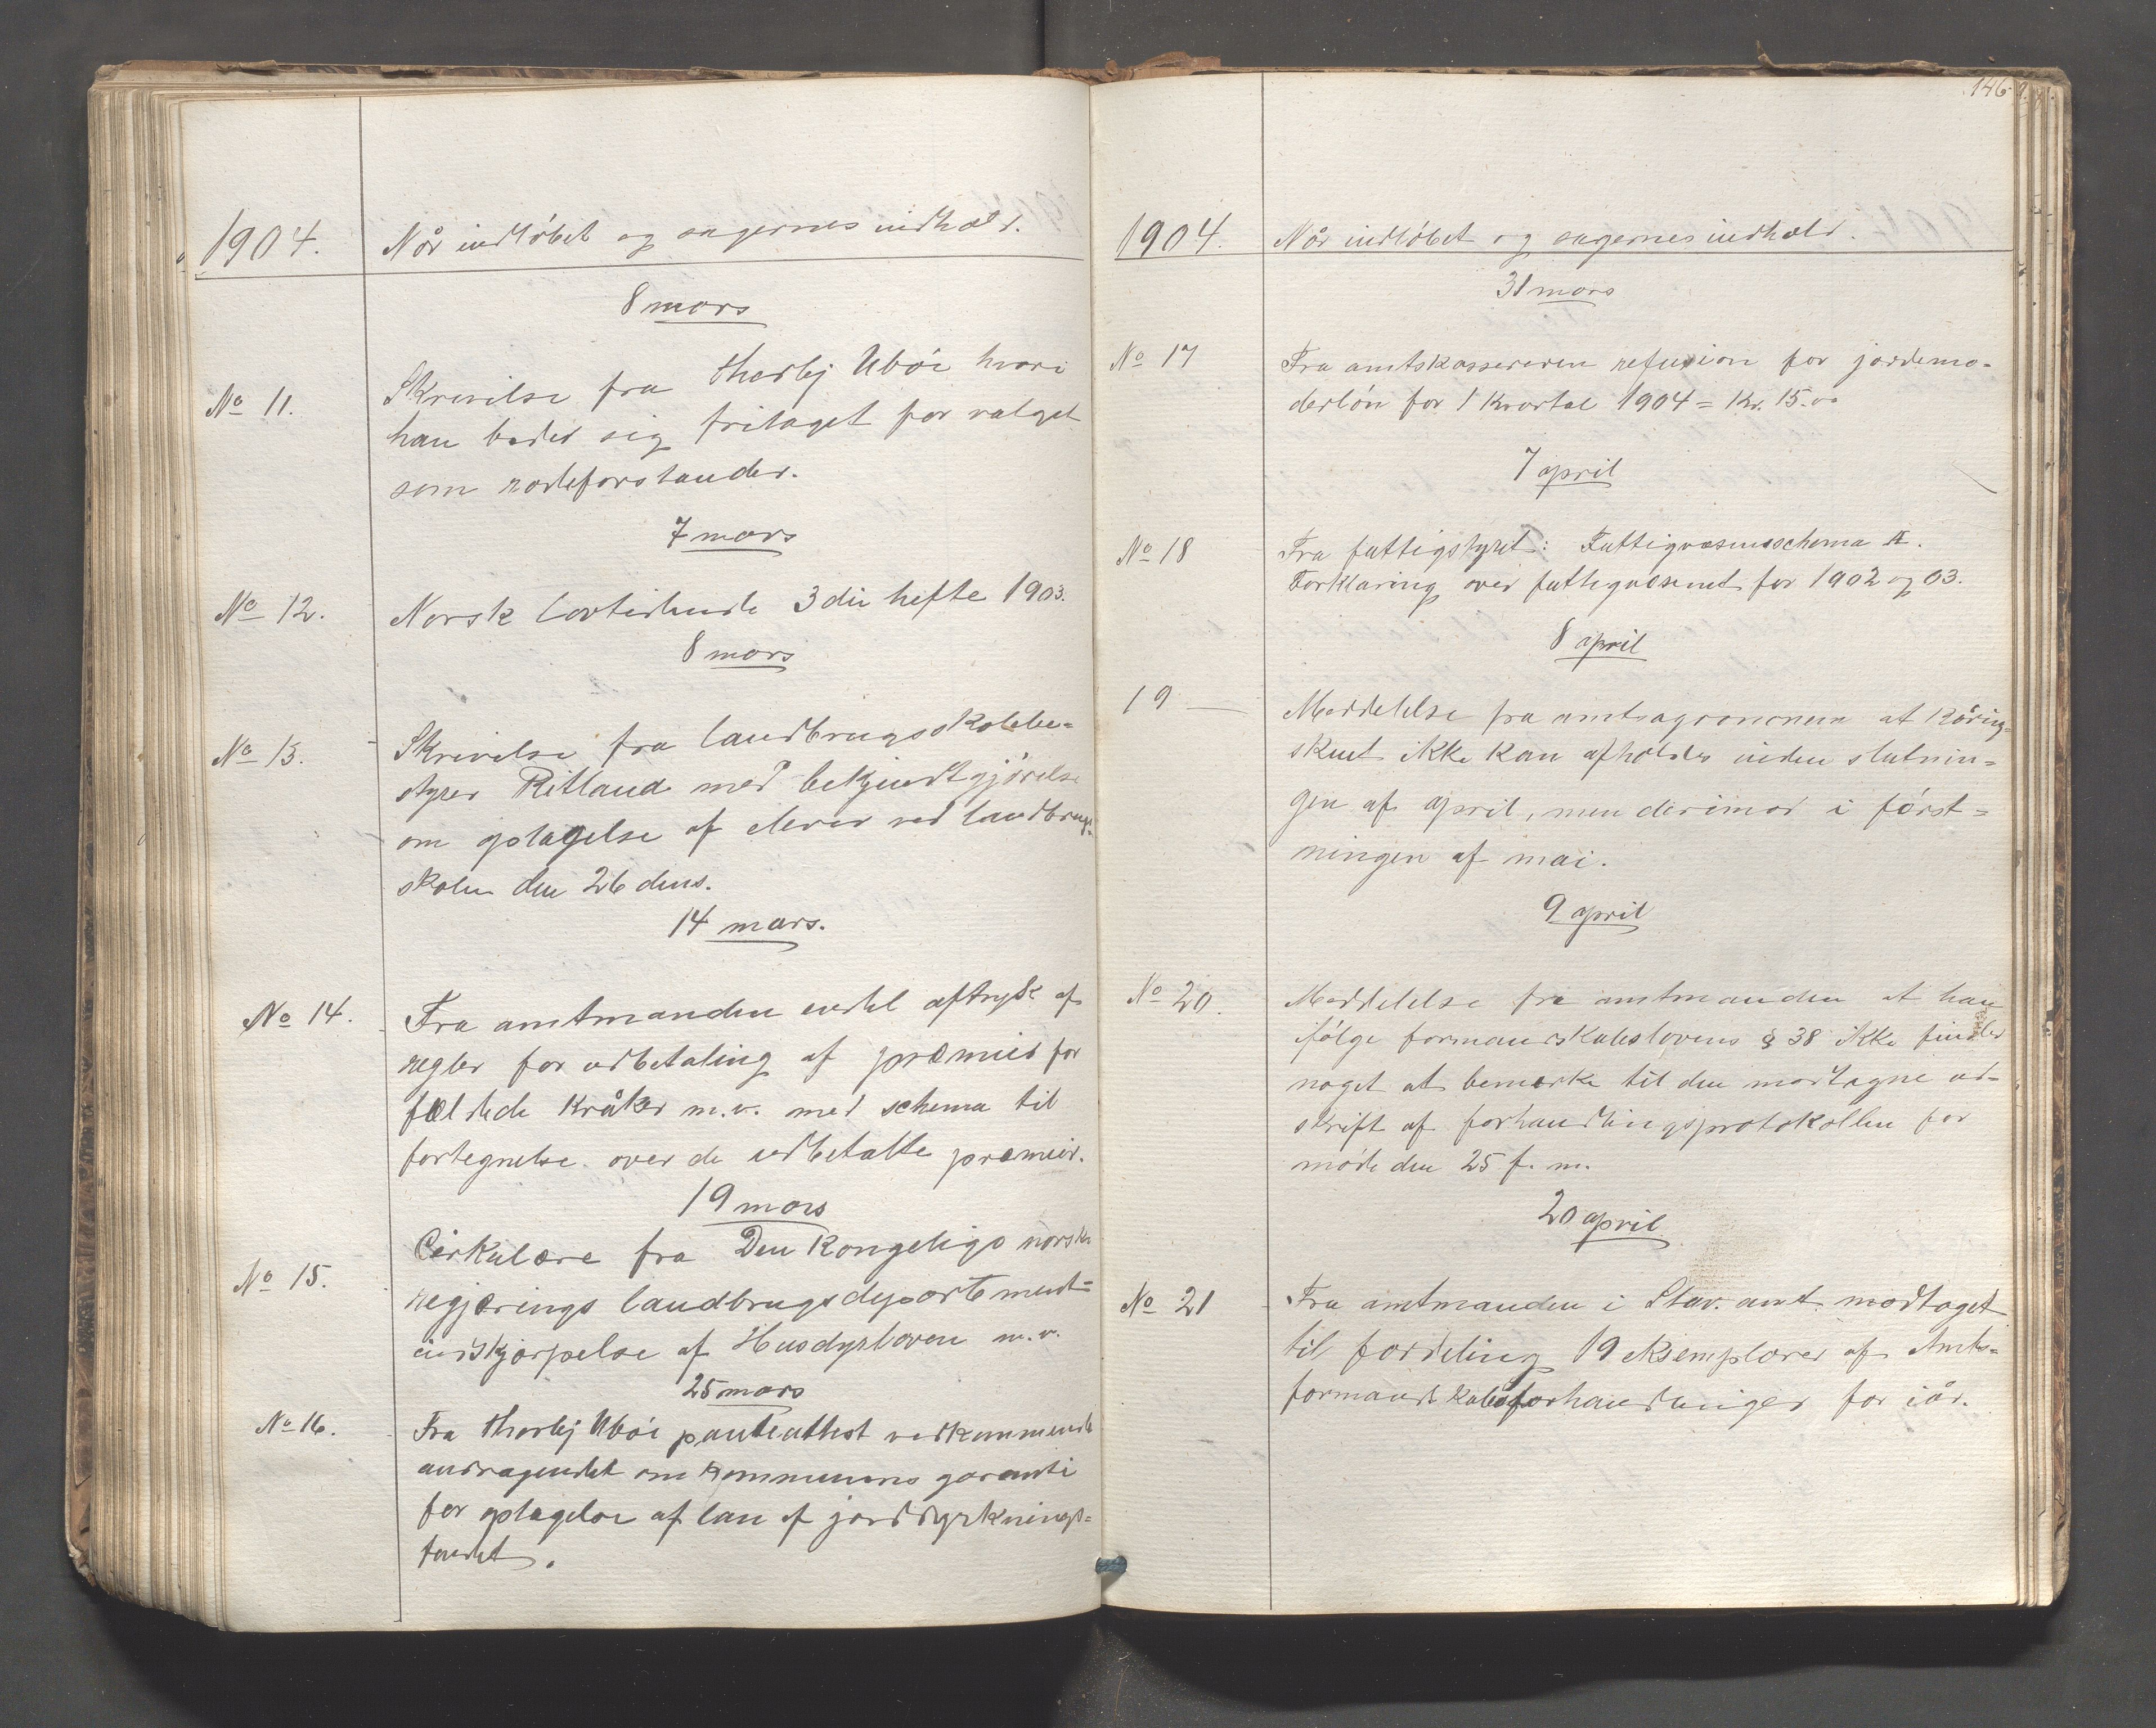 1904. Når indløbet og sagernes indhold.
8 mars
No 11. Skrivelse fra Thorbj Ubøe hvori
han beder sig fritaget for valget
som rodeforstander.
7 mars
No 12. Norsk lovtidende 3die hefte 1903.
8 mars
No 13. Skrivelse fra landbrugsskolebe=
styrer Ritland med bekjendtgjørelse
om optagelse af elever ved landbrugs=
skolen den 26 dens.
14 mars.
No 14. Fra amtmanden endel aftryk af
regler for udbetaling af præmier for
fældede kråker m.v. med schema til
fortegnelse over de udbetalte præmier.
19 mars
No 15. Cirkulære fra Den Kongelige norske
regjerings landbrugsdepartement
indskjærpelse af Husdyrloven m.v.
25 mars
No 16. Fra Thorbj Ubøe panteattest vedkommende
andragendet om kommunens garanti
for optagelse af lån af jorddyrknings=
fondet.
146.
1904. Når indløbet og sagernes indhold.
31 mars
No 17 Fra amtskassereren refusion for jordemo=
derløn for 1 kvartal 1904 = Kr. 15.00
7 april
No 18 Fra fattigstyret: Fattigvæsensschema II.
Forklaring over fattigvæsenet for 1902 og 03.
8 april
19 — Meddelelse fra amtsagronomen at kåring
skuet ikke kan afholdes inden slutnin=
gen af april, men derimod i først=
ningen af mai.
9 april
No 20. Meddelelse fra amtmanden at han
ifølge formandskabslovens § 38 ikke finder
noget at bemærke til den modtagne ud=
skrift af forhandlingsprotokollen for
møde den 25 f. m.
20 april
No 21 Fra amtmanden i Stav. amt modtaget
til fordeling 19 eksemplarer af Amts=
formandskabsforhandlinger for iår.